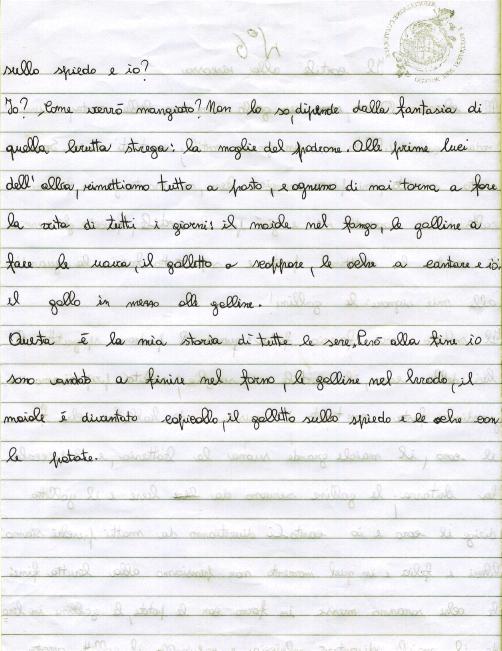 sullo spiedo e io?
Io? Come verrò mangiato? Non lo so, dipende dalla fantasia di
quella brutta strega: la moglie del padrone. Alle prime luci
dell'alba, rimettiamo tutto a posto, e ognuno di noi torna a fare
la vita di tutti i giorni: il maiale nel fango, le galline a
fare le uova, il galletto a scappare, le oche a cantare e io,
il gallo in mezzo alle galline.
Questa è la mia storia di tutte le sere. Però alla fine io
sono andato a finire nel forno, le galline nel brodo, il
maiale è diventato capicollo, il galletto sullo spiedo e le oche con
le patate.